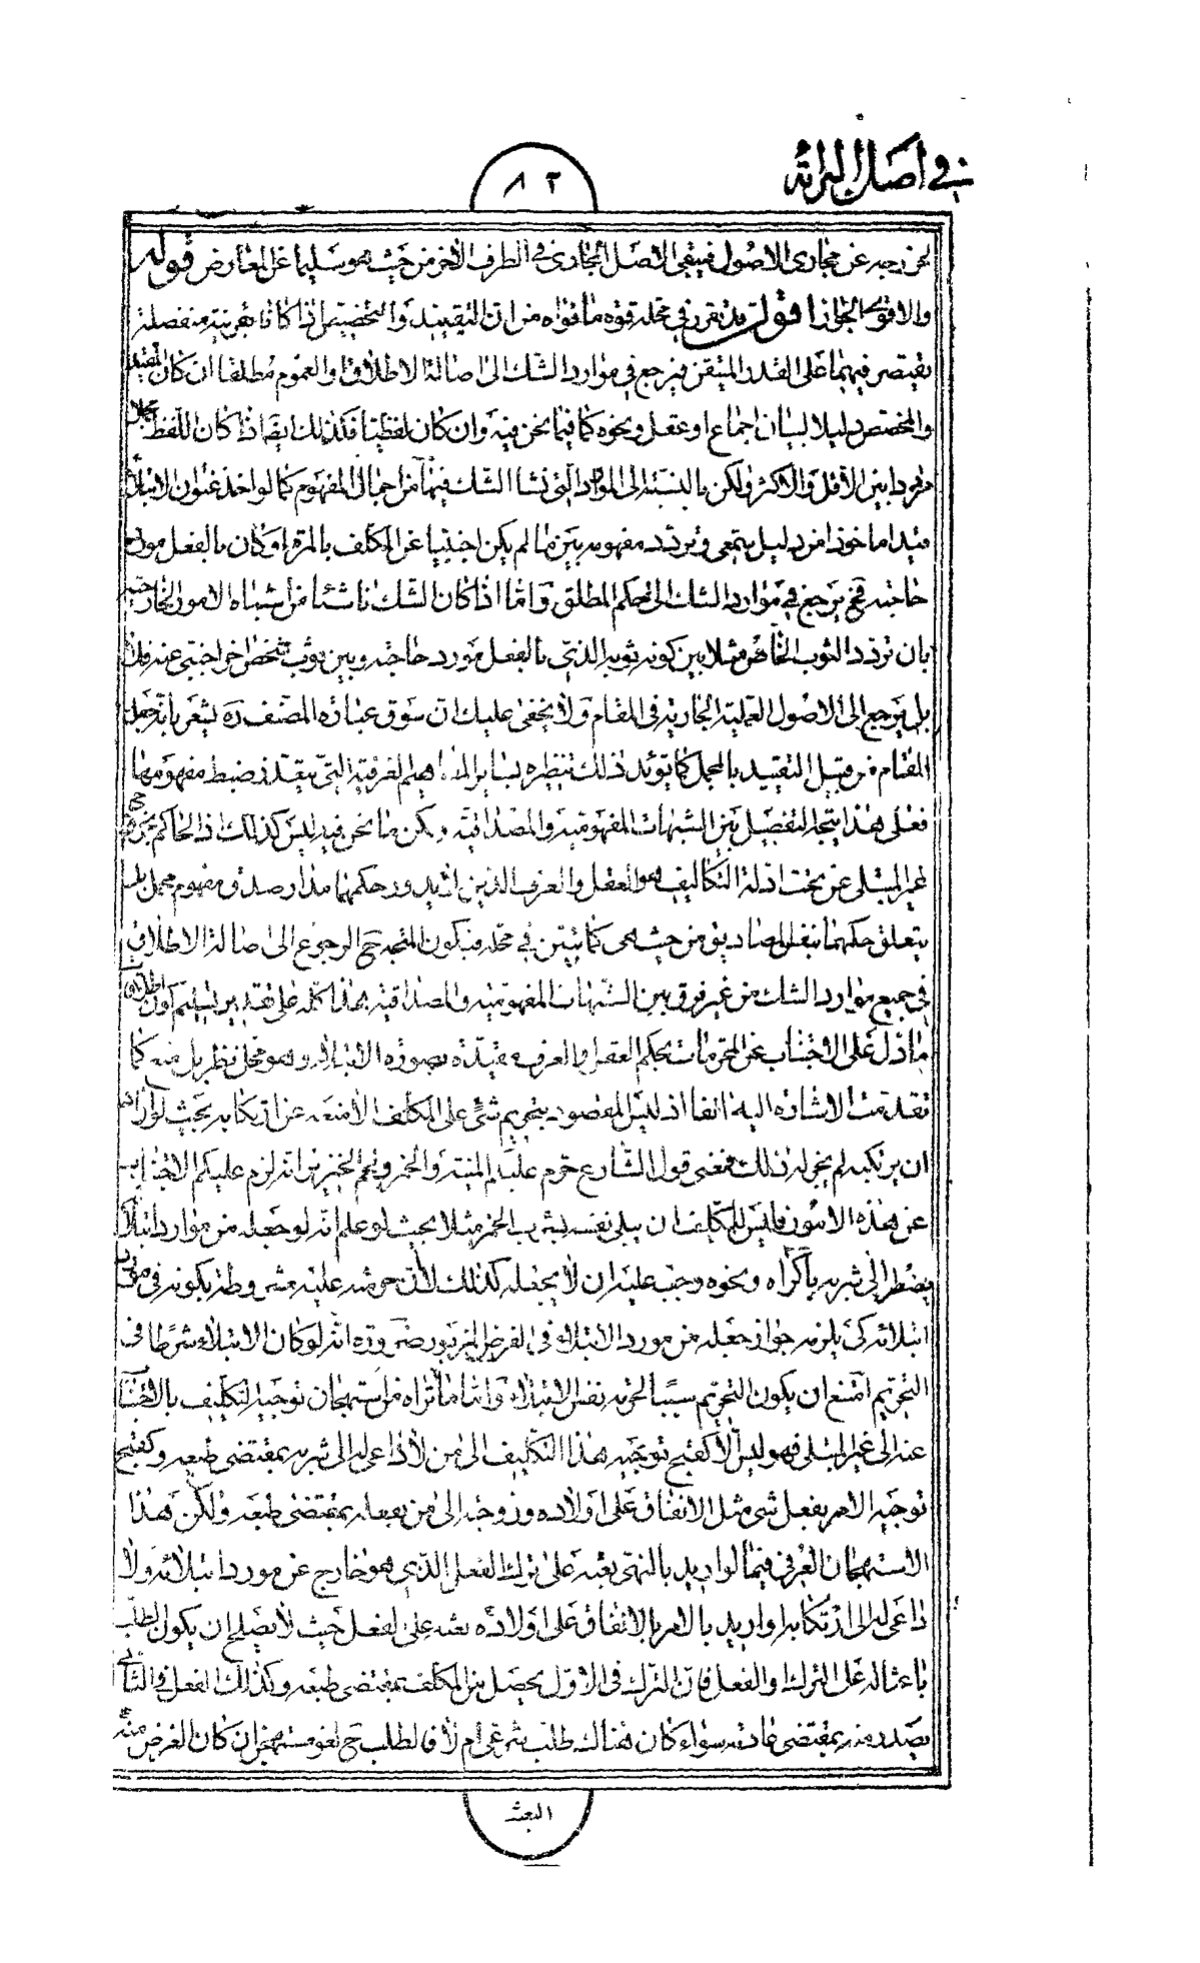 في أصل البرائة
٨٢
لخروجه عن مجاري الاصول فيبقى الاصل الجاري في الطرف الاخر من حيث هو سليما عن المعارض قوله
والاقوى الجواز اقول قد تقرر في محله قوة ما قواه من ان التقييد والتخصيص اذا كانا بقرينة منفصلة
يقتصر فيهما على القدر المتيقن فيرجع في موارد الشك الى اصالة الاطلاق او العموم مطلقا ان كان المقيد
والمخصص دليلا لبيا من اجماع او عقل ونحوه كما فيما نحن فيه وان كان لفظيا فكذلك ايضا اذا كان اللفظ مجملا
مرددا بين الاقل والاكثر ولكن بالنسبة الى الموارد التي نشا الشك فيها من اجمال المفهوم كما لو اخذ عنوان الابتلاء
قيدا ماخوذا من دليل سمعي وتردد مفهومه بين ما لم يكن اجنبيا عن المكلف بالمرة او كان بالفعل مورد
حاجته فح يرجع في موارد الشك الى حكم المطلق واما اذا كان الشك ناشئا من اشتباه الامور الخارجية
بان تردد الثوب الخاص مثلا بين كونه ثوبه الذي بالفعل مورد حاجته وبين ثوب شخص اخر اجنبي عنه فلا
بل يرجع الى الاصول العملية الجارية في المقام ولا يخفى عليك ان سوق عبارة المصنف ره يشعر بانه جعل
المقام من قبيل التقييد بالمجمل كما يؤيد ذلك تنظيره بساير المفاهيم العرفية التي يتعذر ضبط مفهومها
فعلى هذا يتجه التفصيل بين الشبهات المفهومية والمصداقية ولكن ما نحن فيه ليس كذلك اذ الحاكم بخروج
غير المبتلى عن تحت ادلة التكاليف هو العقل والعرف الذين لا يدور حكمهما مدار صدق مفهوم مجمل بل
يتعلق حكمهما بنفس المصاديق من حيث هي كما تبين في محله فيكون المتجه ح الرجوع الى اصالة الاطلاق
في جميع موارد الشك من غير فرق بين الشبهات المفهومية والمصداقية هذا كله على تقدير تسليم كون اطلاق
ما دل على الاجتناب عن المحرمات بحكم العقل والعرف مقيدة بصورة الابتلاء وهو محل نظر بل منع كما
تقدمت الاشارة اليه انفا اذ ليس المقصود بتحريم شئ على المكلف الا منعه عن ارتكابه بحيث لو اراد
ان يرتكبه لم يجز له ذلك فمعنى قول الشارع حرم عليكم الميتة والخمر ولحم الخنزير انه لزم عليكم الاجتناب
عن هذه الامور فليس للمكلف ان يبلى نفسه بشرب الخمر مثلا بحيث لو علم انه لو جعله من موارد ابتلائه
يضطر الى شربه باكراه ونحوه وجب عليه ان لا يجعله كذلك لا ان حرمته عليه مشروطة بكونه في مورد
ابتلائه كي يلزمه جواز جعله من مورد الابتلاء في الفرض المزبور ضرورة انه لو كان الابتلاء شرطا في
التحريم امتنع ان يكون التحريم سببا لحرمة نفس الابتلاء واما ما تراه من استهجان توجيه التكليف بالاجتناب
عنه الى غير المبتلى فهو ليس الا كقبح توجيه هذا التكليف الى من لا داعي له الى شربه بمقتضى طبعه وكقبح
توجيه الامر بفعل شئ مثل الانفاق على اولاده وزوجته الى من يفعله بمقتضى طبعه ولكن هذا
الاستهجان العرفي فيما لو اريد بالنهي بعثه على ترك الفعل الذي هو خارج عن مورد ابتلائه ولا
داعي له الى ارتكابه او اريد بالامر بالانفاق على اولاده بعثه على الفعل حيث لا يصلح ان يكون الطلب
باعثا له على الترك والفعل فان الترك في الاول يحصل من المكلف بمقتضى طبعه وكذلك الفعل في الثاني
يصدر منه بمقتضى عادته سواء كان هناك طلب شرعي ام لا فالطلب ح لغو مستهجن ان كان الغرض منه
البعث